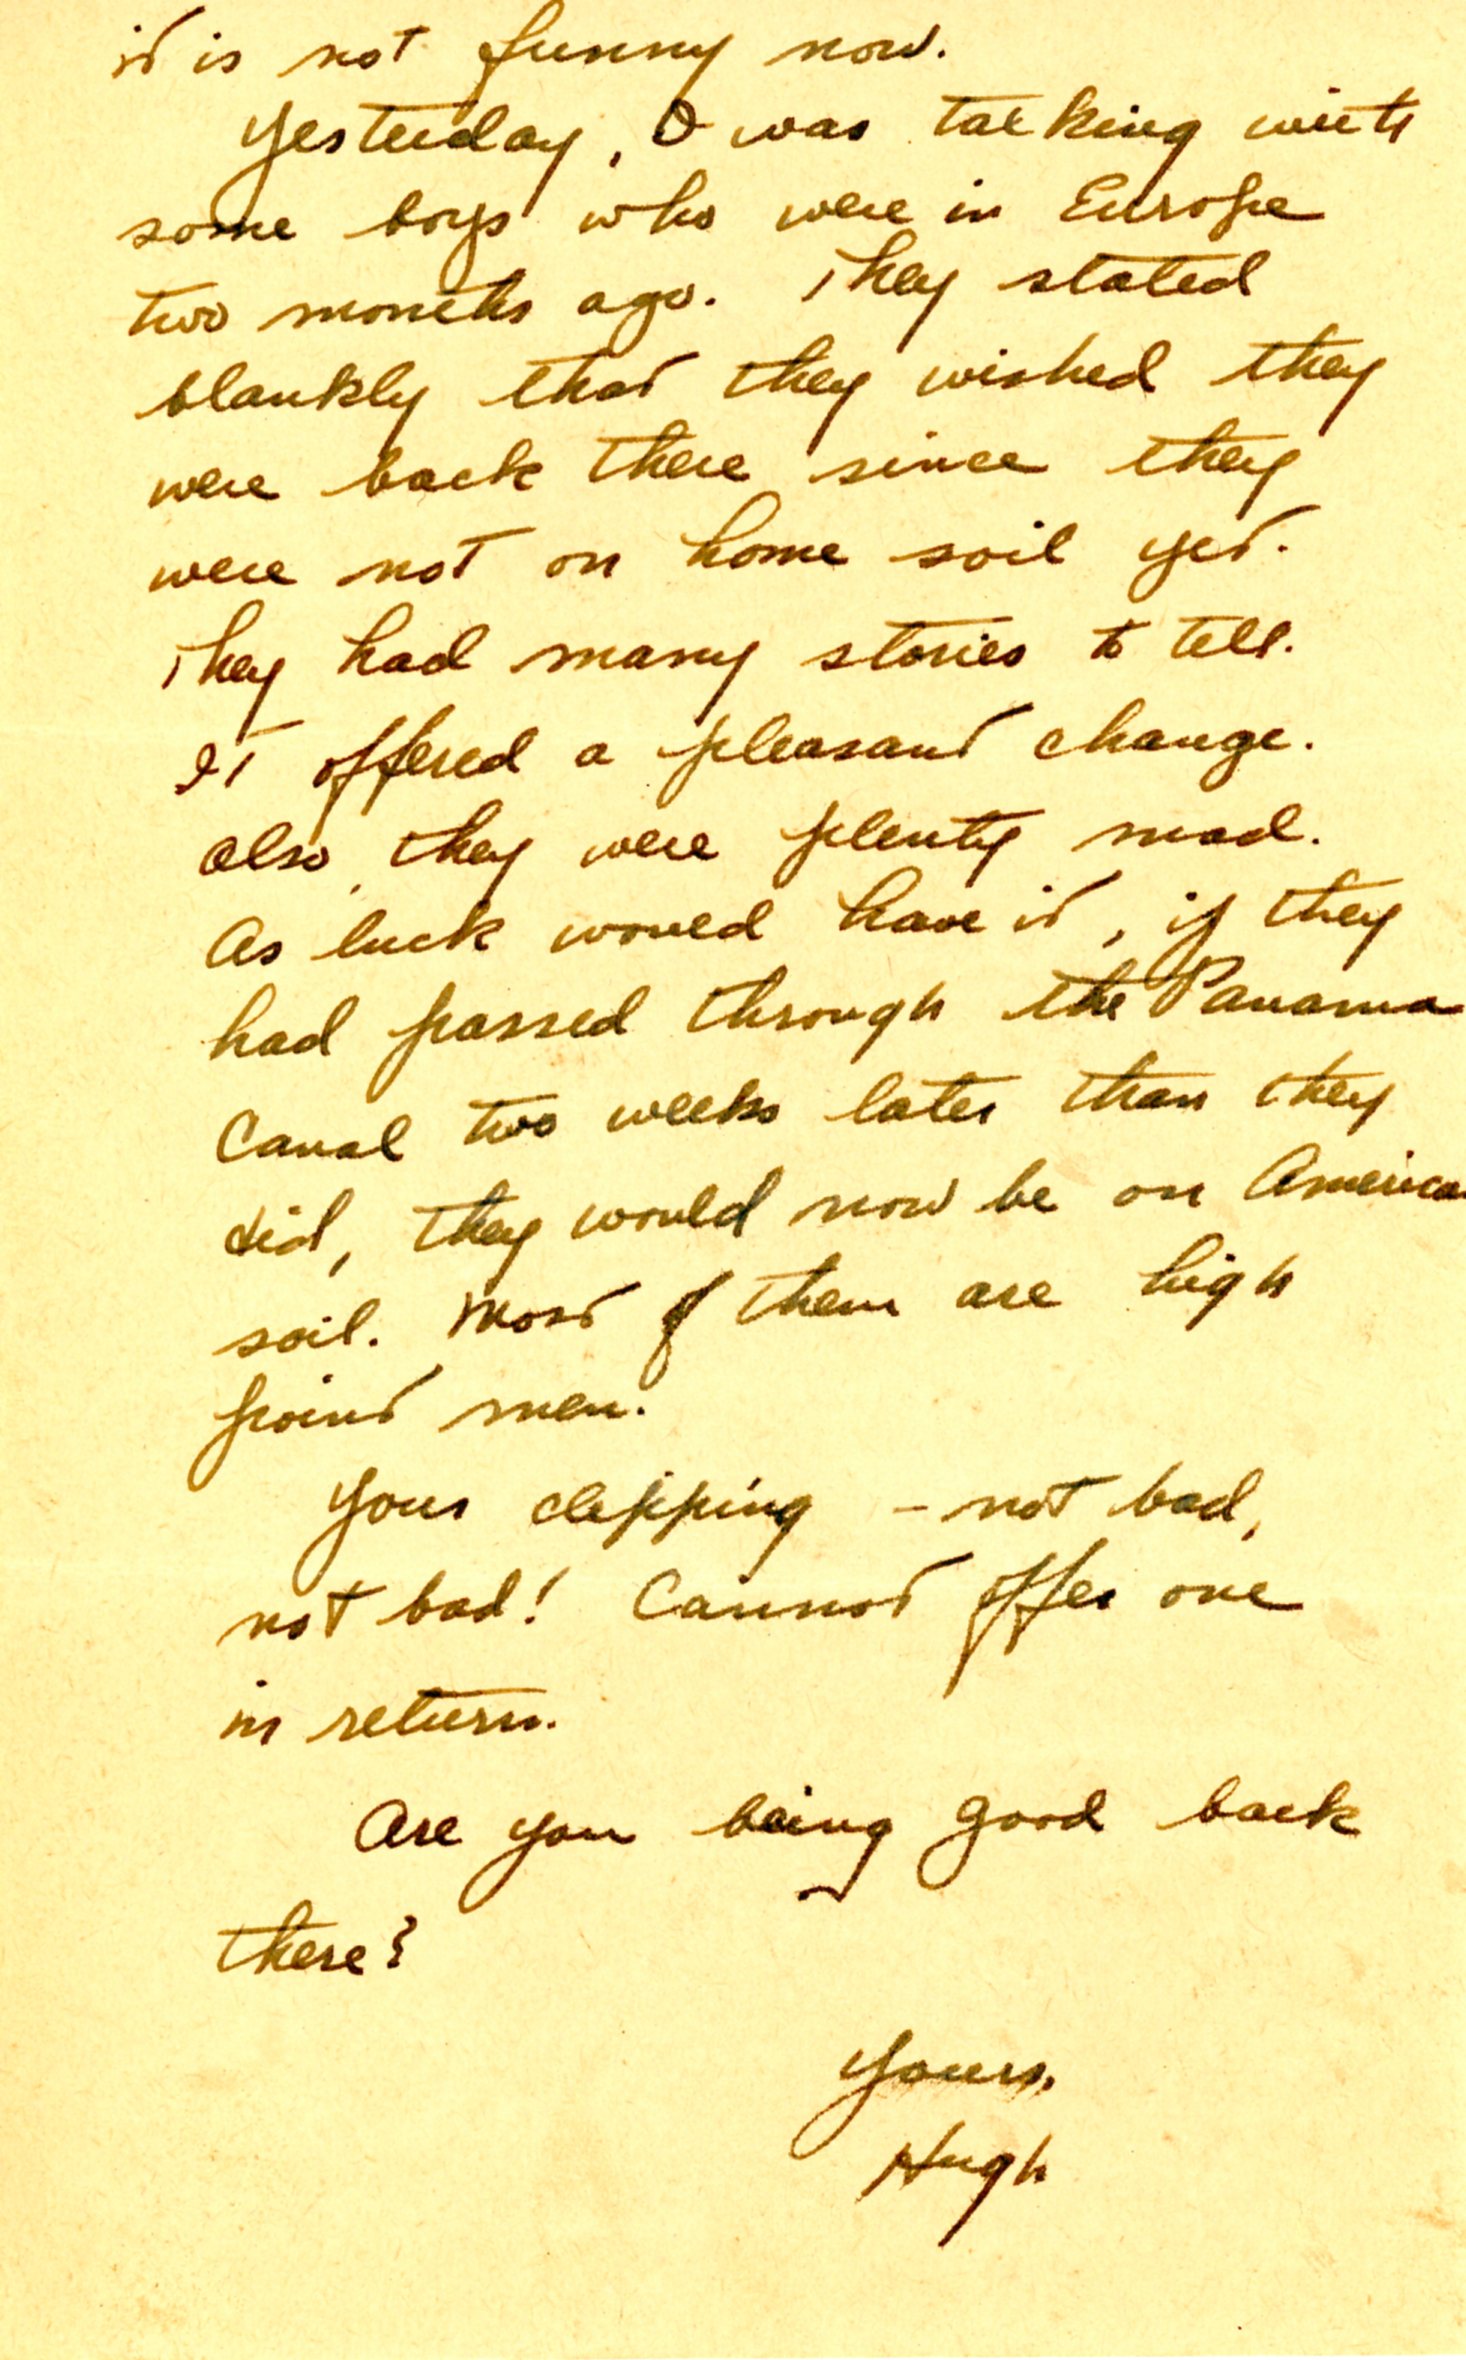 it is not funny now.
Yesterday, I was talking with
some boys who were in Europe
two months ago. They stated
blankly that they wished they
were back there since they
were not on home soil yet.
They had many stories to tell.
It offered a pleasant change.
Also, they were plenty mad.
As luck would have it, if they
had passed through the Panama
Canal two weeks later than they
did, they would now be on American
soil. Most of them are high
point men.
Your clipping - not bad,
not bad! Cannot offer one
in return.
Are you being good back
there?
Yours,
Hugh